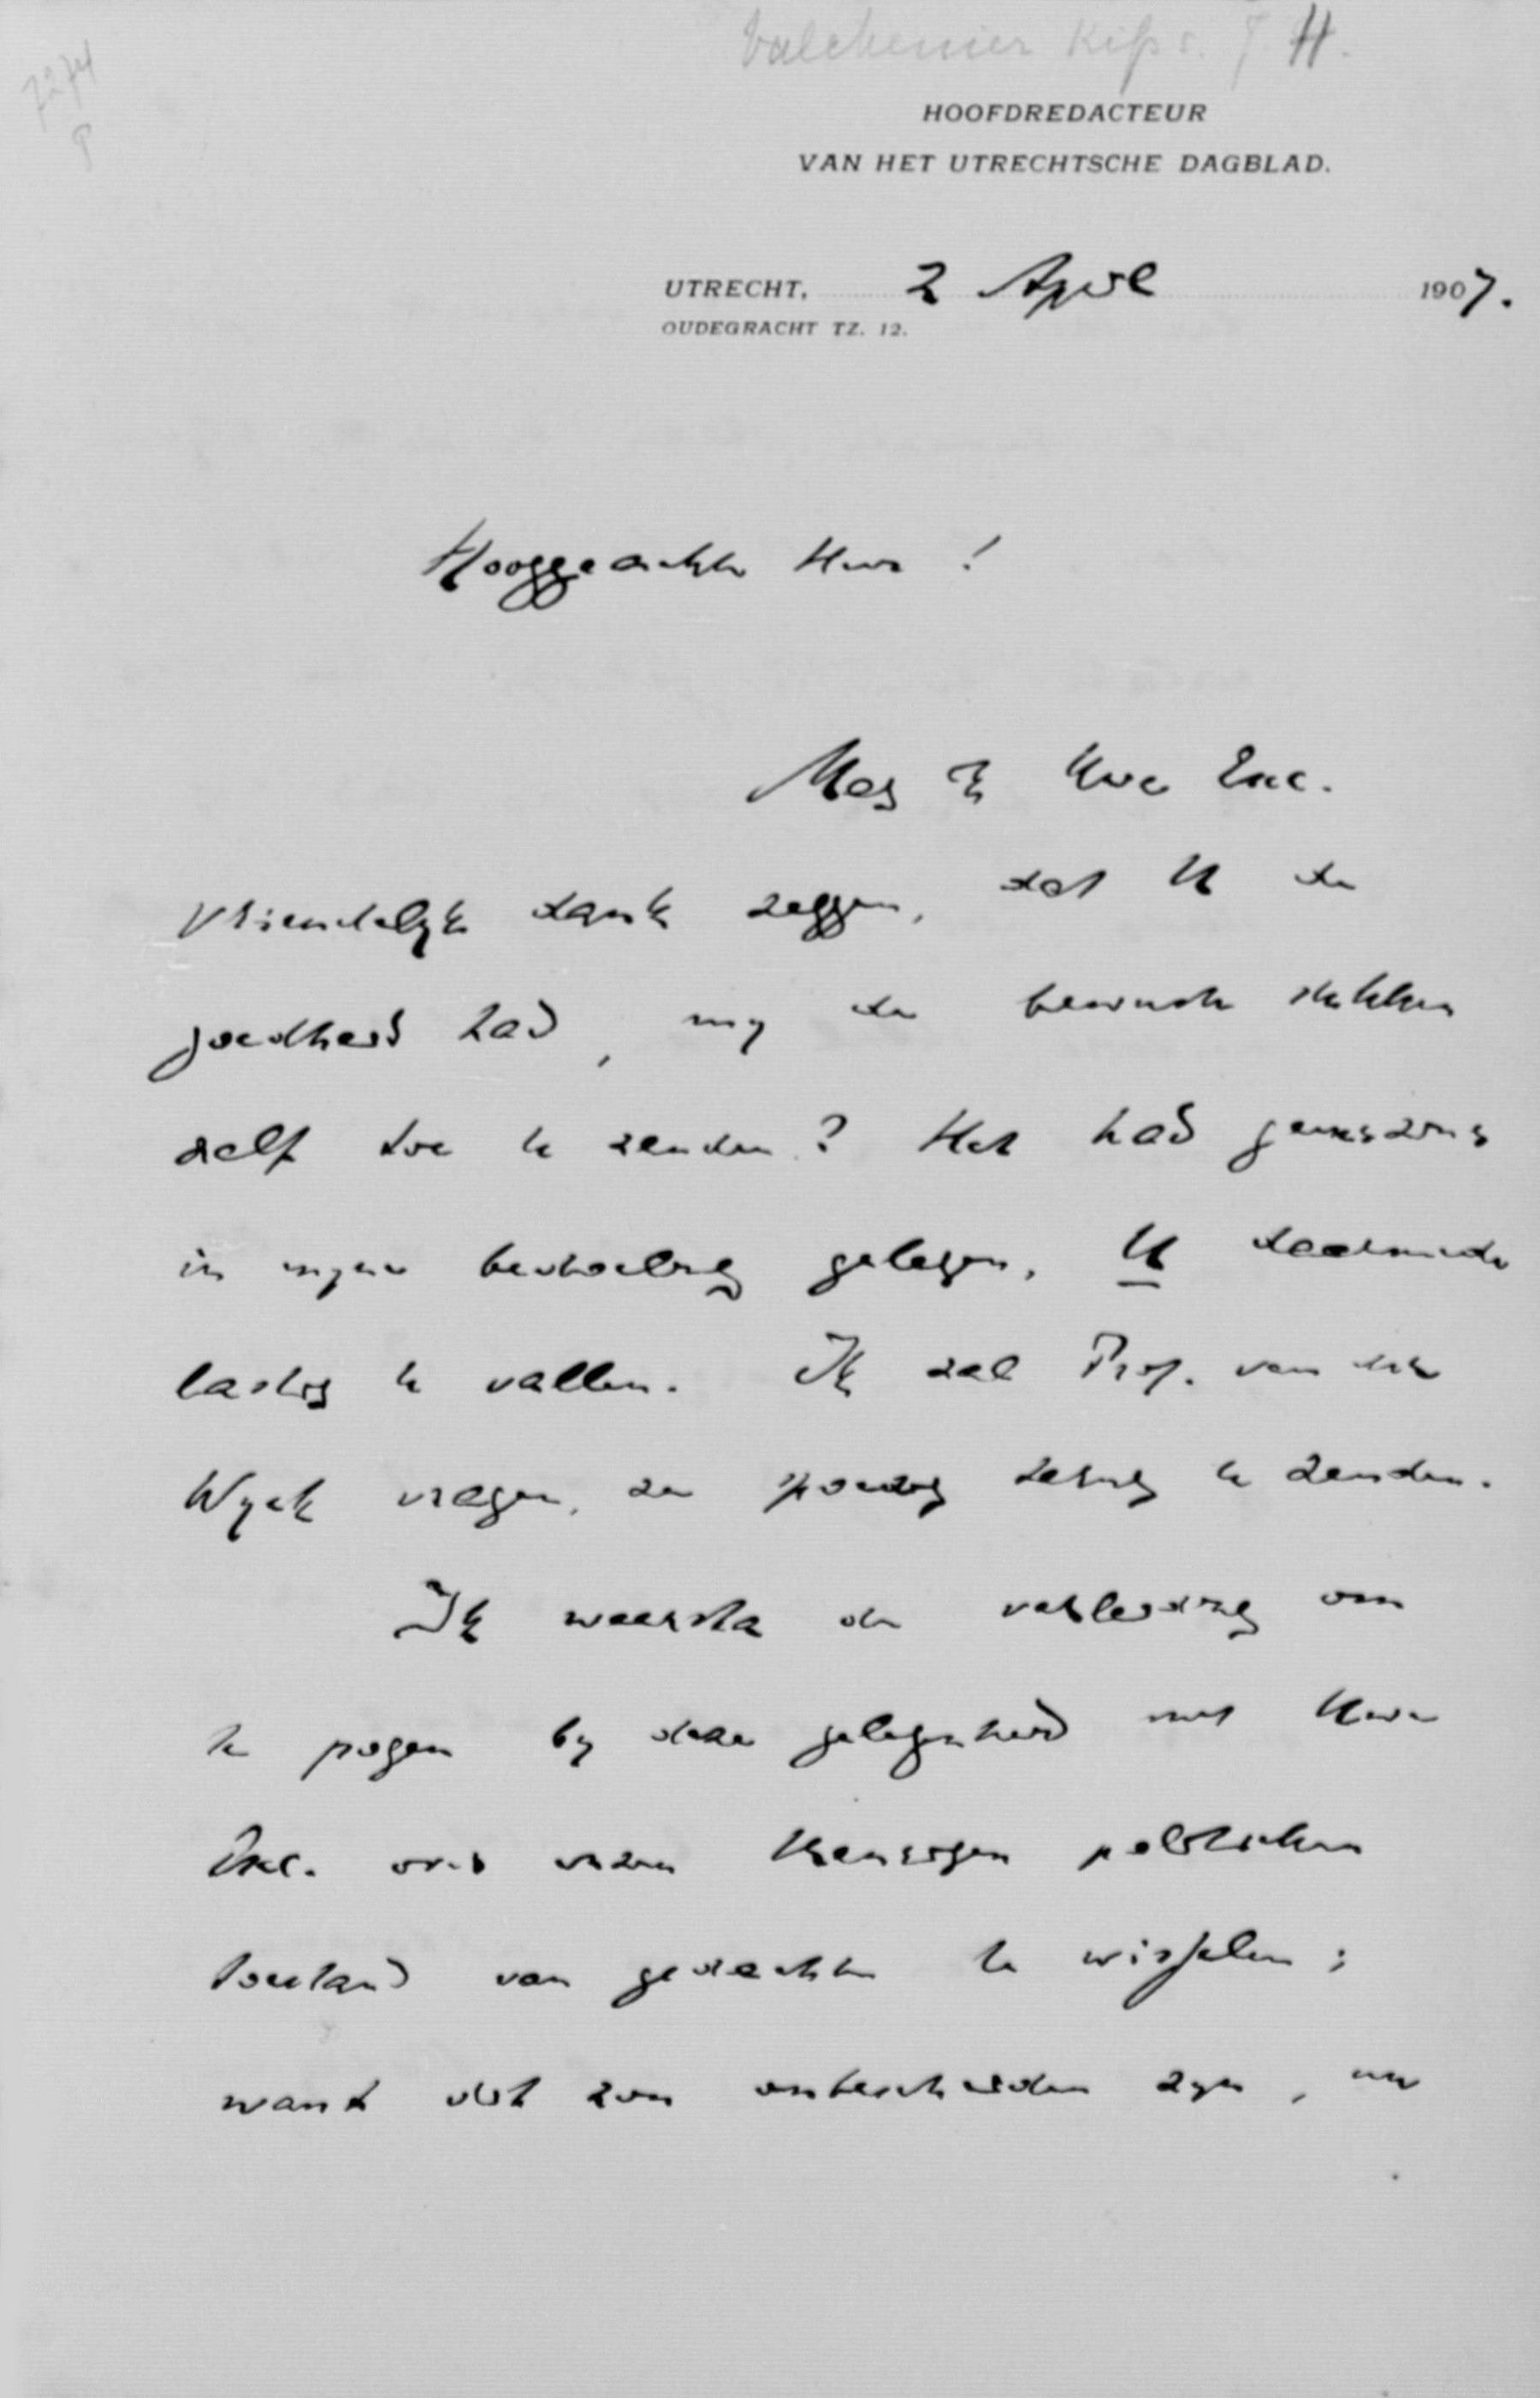 Valckenier Kips. J. H.
7274
P
HOOFDREDACTEUR
VAN HET UTRECHTSCHE DAGBLAD.
UTRECHT, 2 April 1907.
OUDEGRACHT TZ. 12.
Hooggeachte Heer!
Mag ik Uwe Exc.
vriendelyk dank zeggen, dat U de
goedheid had, my de bewuste stukken
zelf toe te zenden? Het had geenszins
in myne bedoeling gelegen, U daarmede
lastig te vallen. Ik zal Prof. van der
Wyck vragen, ze spoedig terug te zenden.
Ik weersta de verleiding om
te pogen by deze gelegenheid met Uwe
Exc. over onzen treurigen politieken
toestand van gedachten te wisselen;
want dit zou onbescheiden zyn, nu